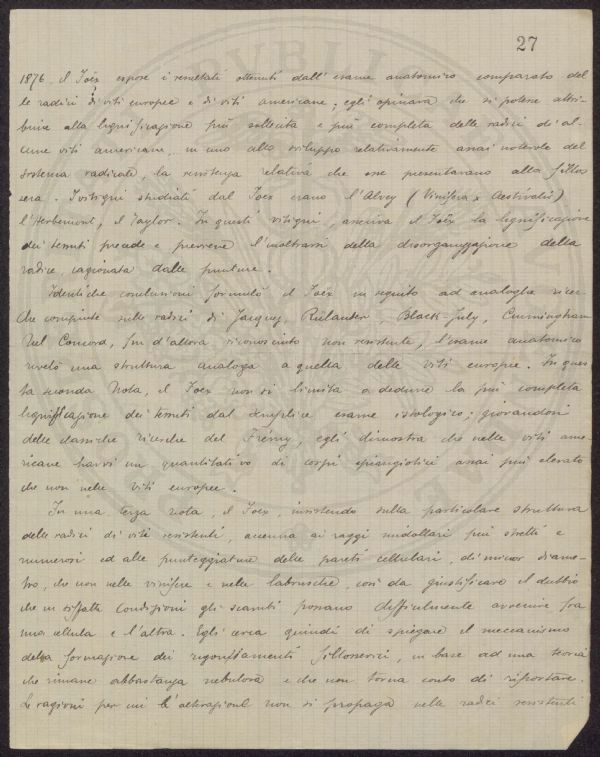 27
1876 il Foëx espone i resultati ottenuti dall'esame anatomico comparato del
le radici di viti europee e di viti americane; egli opinava che si potesse attri-
buire alla lignificazione più sollecita e più completa delle radici di al-
cune viti americane, in uno allo sviluppo relativamente assai notevole del
sistema radicale, la resistenza relativa che esse presentavano alla fillos
sera. I vitigni studiati dal Foëx erano l'Alvey (Vinifera x Aestivalis)
l'Herbemont, il Taylor. In questi vitigni, asseriva il Foëx la lignificazione
dei tessuti precede e previene l'inoltrarsi della disorganizzazione della
radice, cagionata dalle punture.
Identiche conclusioni formulò il Foëx in seguito ad analoghe ricer-
che compiute sulle radici di Jacquez, Rulander, Black-July, Cunningham
Nel Concord, fin d'allora riconosciuto non resistente, l'esame anatomico
rivelò una struttura analoga a quella delle viti europee. In ques
ta seconda Nota, il Foëx non si limita a dedurre la più completa
lignificazione dei tessuti dal semplice esame istologico; giovandosi
delle classiche ricerche del Frémy, egli dimostra che nelle viti ame-
ricane havvi un quantitativo di corpi epiangiotici assai più elevato
che non nelle viti europee.
In una terza nota, il Foëx, insistendo sulla particolare struttura
delle radici di viti resistenti, accenna ai raggi midollari più stretti e
numerosi ed alle punteggiature delle pareti cellulari, di minor diame-
tro, che non nelle vinifere e nelle labrusche, così da giustificare il dubbio
che in siffatte condizioni gli scambi possano difficilmente avvenire fra
una cellula e l'altra. Egli cerca quindi di spiegare il meccanismo
della formazione dei rigonfiamenti fillosserici, in base ad una teoria
che rimane abbastanza nebulosa e che non torna conto di riportare.
Le ragioni per cui l'alterazione non si propaga nelle radici resistenti